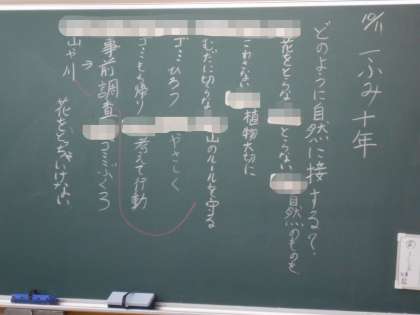 10/11 一ふみ十年
どのように自然に接する？
花をとらない とらない 自然のものを
こわさない 植物大切に
むだに切らない 山のルールを守る
ゴミひろう やさしく
ゴミもち帰り 考えて行動
事前調査 ゴミぶくろ
山や川 花をとっちゃいけない